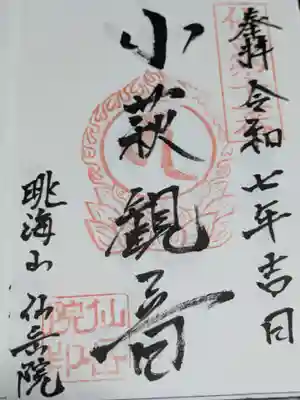 奉拝 令和七年吉日
小萩観音
眺海山 仙岳院